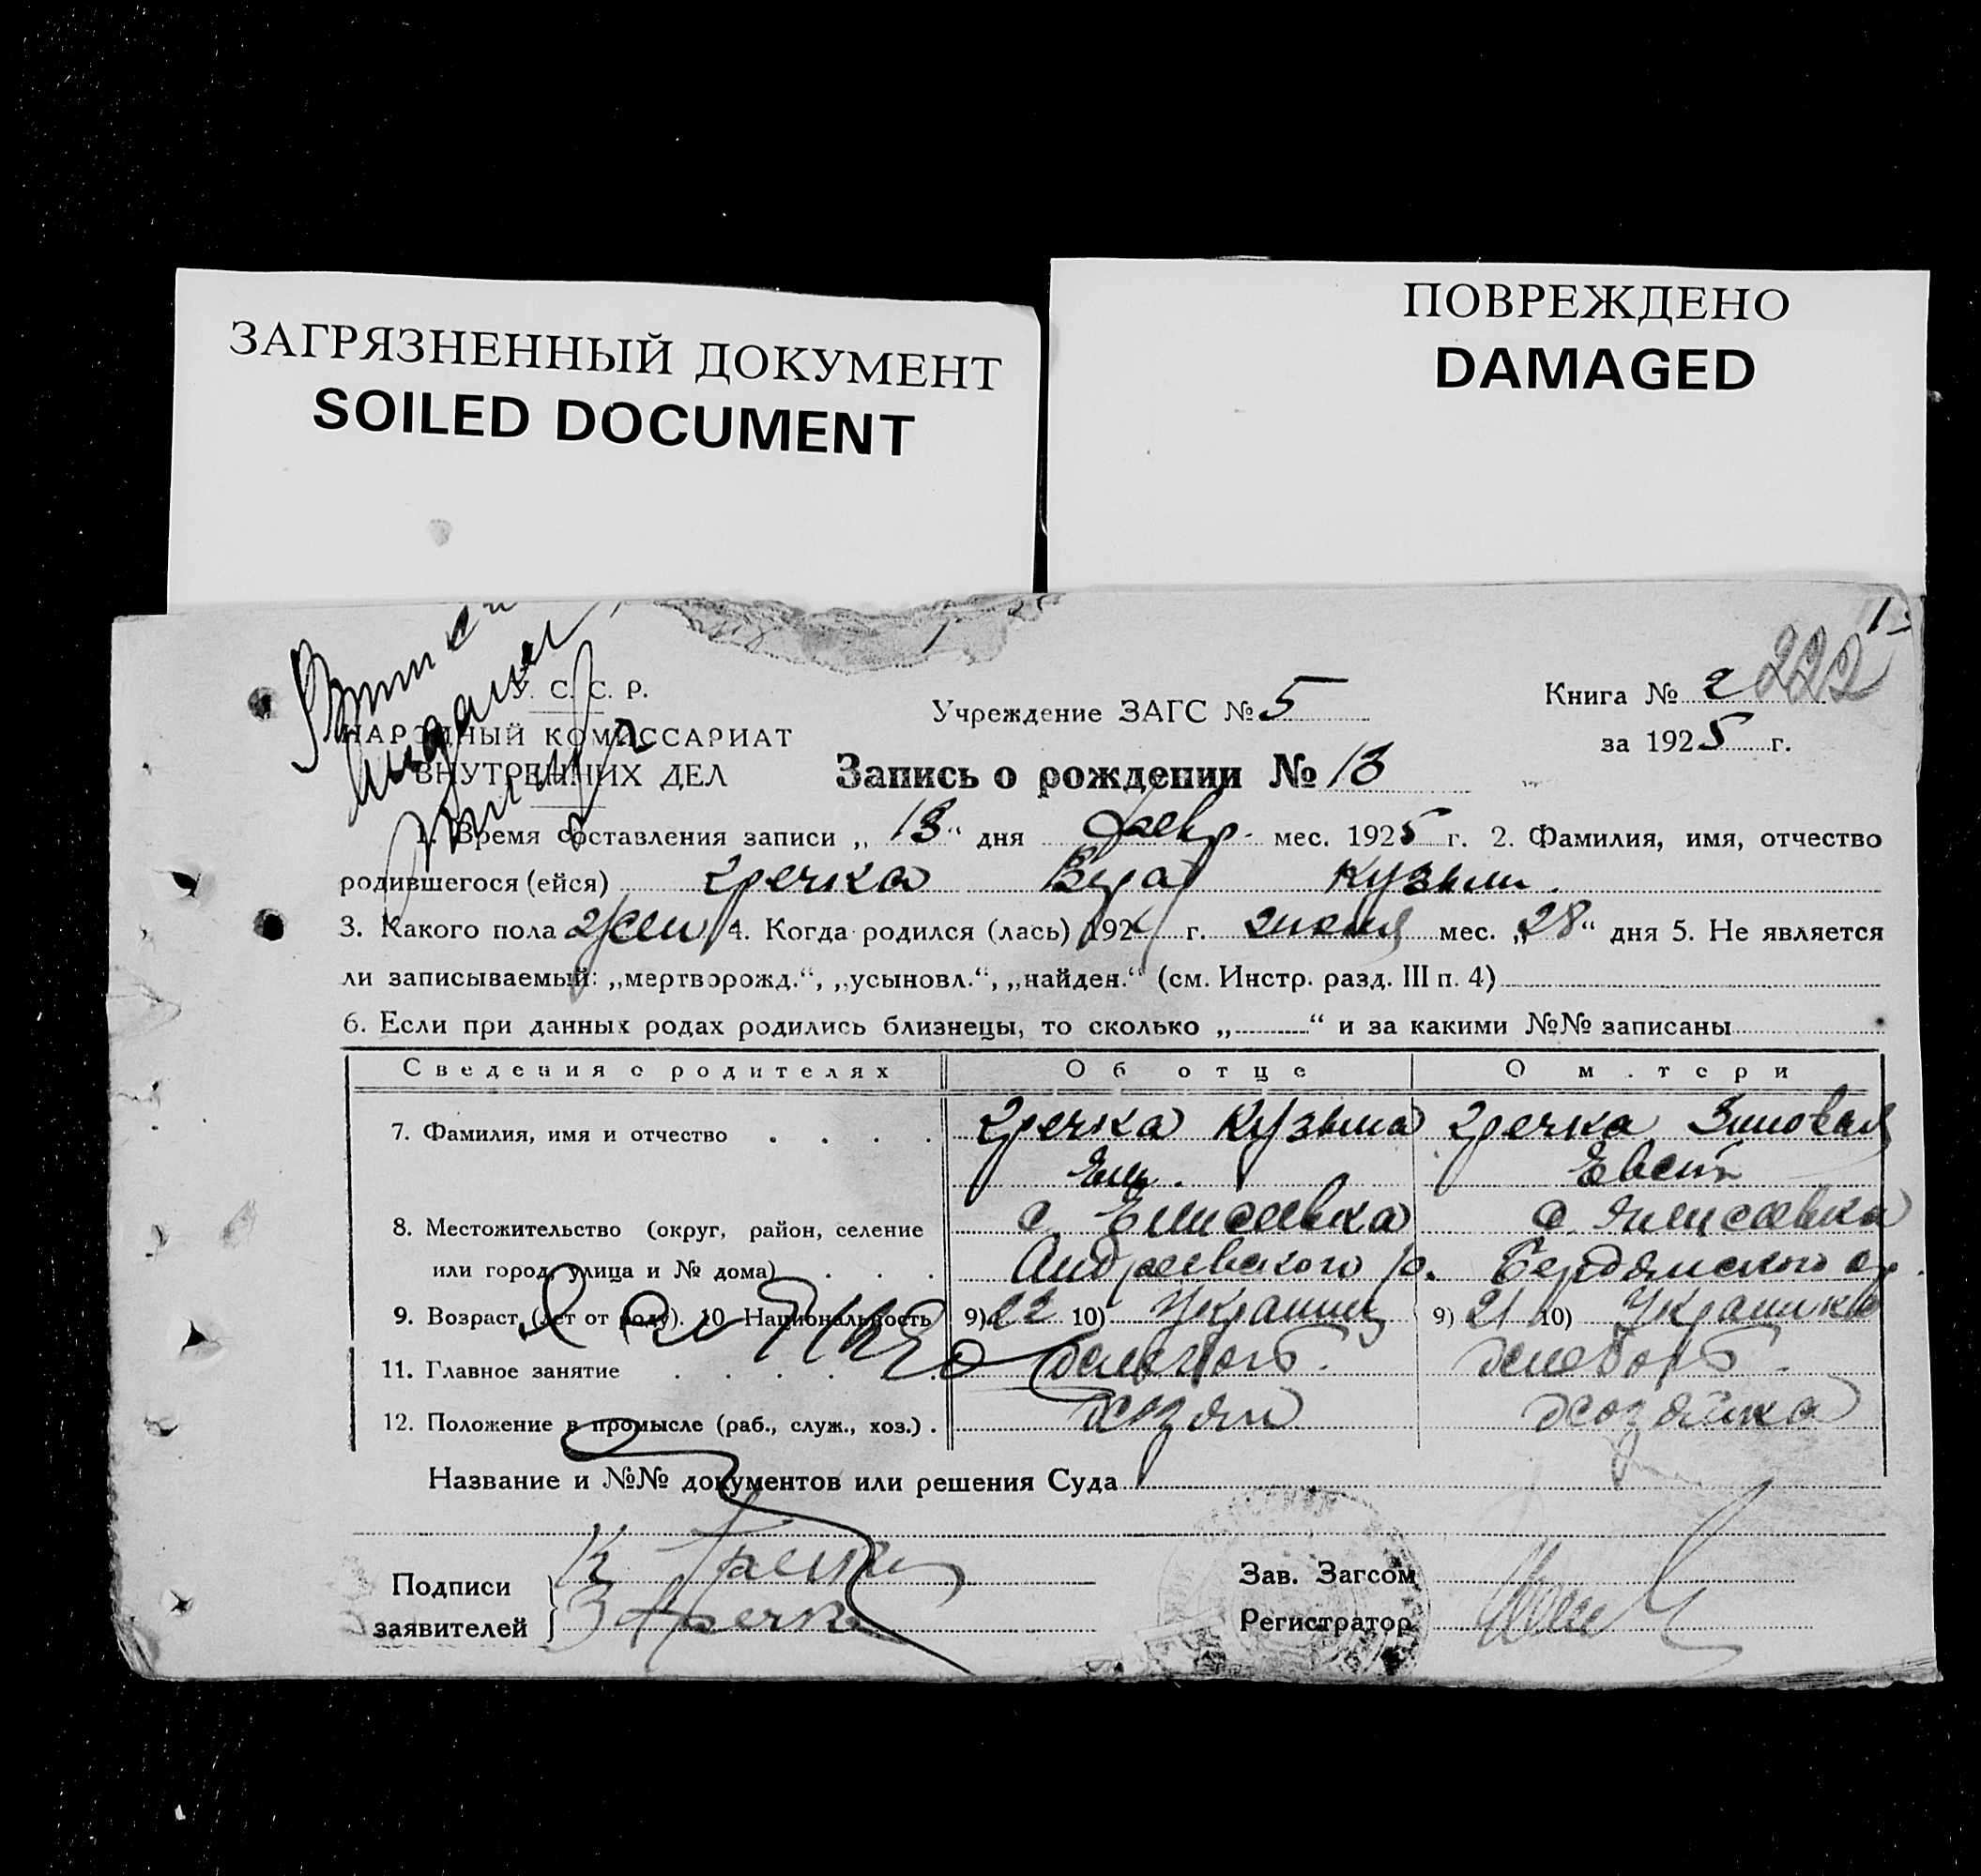 ЗАГРЯЗНЕННЫЙ ДОКУМЕНТ
SOILED DOCUMENT
ПОВРЕЖДЕНО
DAMAGED
У. С. С. Р.
НАРОДНЫЙ КОМИССАРИАТ
ВНУТРЕННИХ ДЕЛ
Учреждение ЗАГС № 5
Книга № 2 222
за 1925 г.
Запись о рождении № 13
1. Время составления записи „13“ дня февр. мес. 1925 г. 2. Фамилия, имя, отчество
родившегося (ейся) Гречка Вера Кузьм.
3. Какого пола жен 4. Когда родился (лась) 1924 г. мес. „28“ дня 5. Не является
ли записываемый: „мертворожд.“, „усыновл.“, „найден.“ (см. Инстр. разд. III п. 4)
6. Если при данных родах родились близнецы, то сколько „ “ и за какими №№ записаны
Сведения о родителях Об отце О матери
7. Фамилия, имя и отчество Гречка Кузьма Гречка Зиновья
8. Местожительство (округ, район, селение с. Елисеевка с. Елисеевка
или город, улица и № дома) Андреевского р. Бердянского ок.
9. Возраст (лет от роду). 10. Национальность 9) 22 10) Украинец 9) 21 10) Украинка
11. Главное занятие хлебороб. хлебороб.
12. Положение в промысле (раб., служ., хоз.) хозяин хозяйка
Название и №№ документов или решения Суда
Подписи заявителей К Гречка
З Гречка
Зав. Загсом
Регистратор